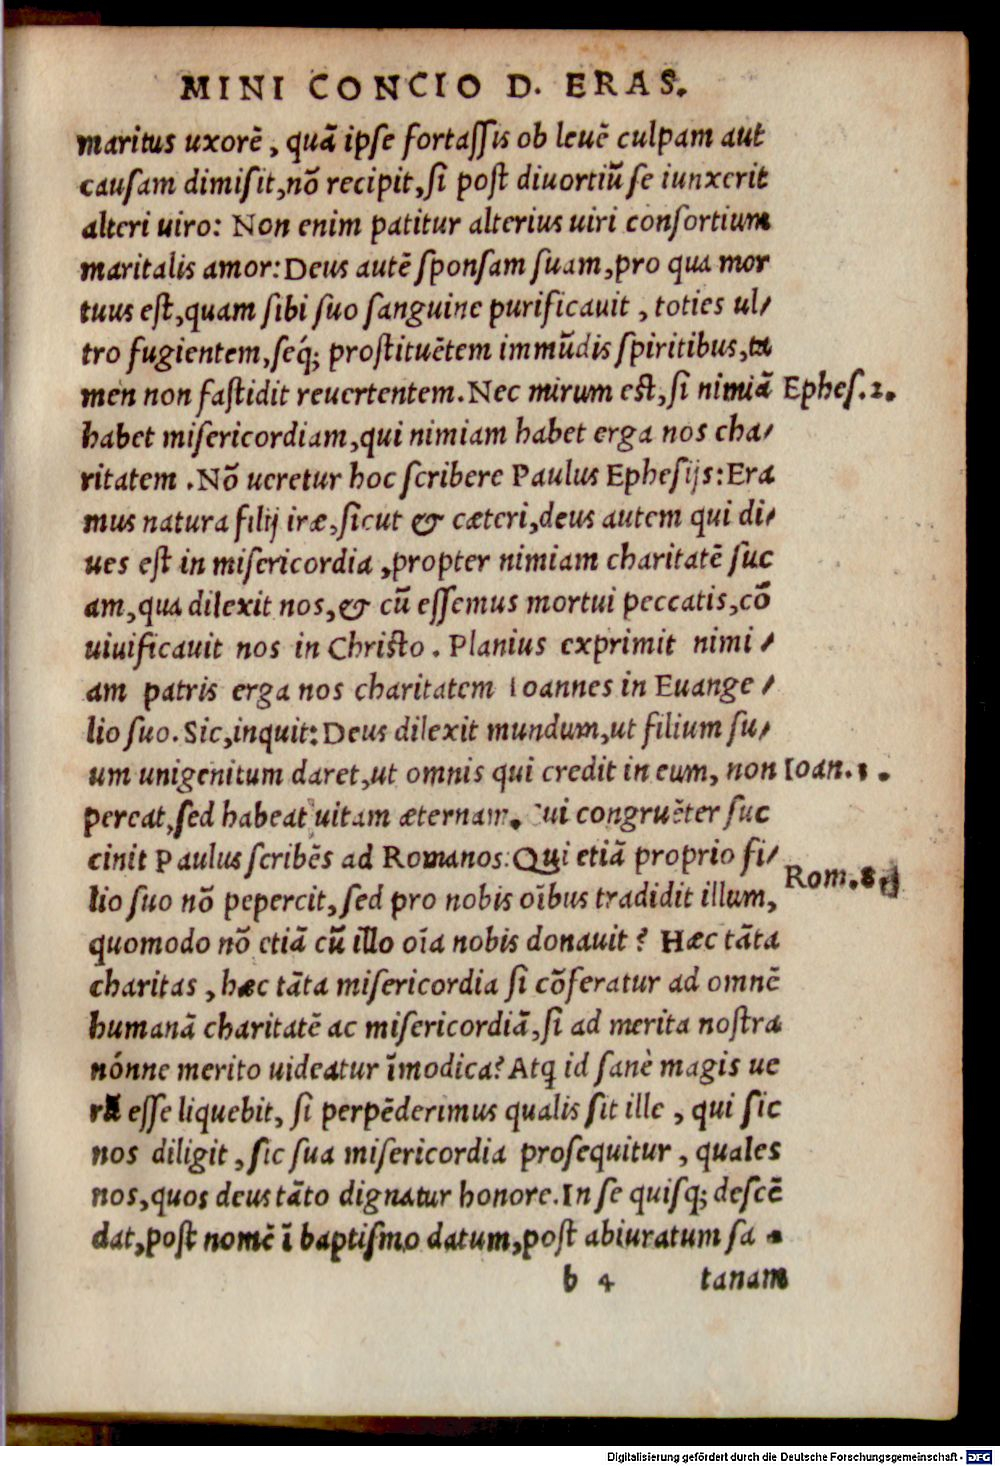 MINI CONCIO D. ERAS.
maritus uxorē, quā ipse fortaſſis ob leuē culpam aut
cauſam dimiſit, nō recipit, ſi poſt diuortiū ſe iunxerit
alteri uiro: Non enim patitur alterius uiri conſortium
maritalis amor: Deus autē ſponſam ſuam, pro qua mor
tuus eſt, quam ſibi ſuo ſanguine purificauit, toties ul-
tro fugientem, ſeq́; proſtituētem immūdis ſpiritibus, ta
men non faſtidit reuertentem. Nec mirum eſt, ſi nimiā
Epheſ. 2.
habet miſericordiam, qui nimiam habet erga nos cha-
ritatem. Nō ueretur hoc ſcribere Paulus Epheſijs: Era
mus natura filij iræ, ſicut & cæteri, deus autem qui di-
ues eſt in miſericordia, propter nimiam charitatē ſuc
am, qua dilexit nos, & cū eſſemus mortui peccatis, cō
uiuificauit nos in Chriſto. Planius exprimit nimi-
am patris erga nos charitatem Ioannes in Euange-
lio ſuo. Sic, inquit: Deus dilexit mundum, ut filium ſu-
um unigenitum daret, ut omnis qui credit in eum, non
Ioan. 3.
pereat, ſed habeat uitam æternam. Cui congruēter ſuc
cinit Paulus ſcribēs ad Romanos: Qui etiā proprio fi-
lio ſuo nō pepercit, ſed pro nobis oībus tradidit illum,
Rom. 8
quomodo nō etiā cū illo oīa nobis donauit? Hæc tāta
charitas, hæc tāta miſericordia ſi cōferatur ad omnē
humanā charitatē ac miſericordiā, ſi ad merita noſtra
nónne merito uideatur īmodica? Atq; id ſanè magis ue
rū eſſe liquebit, ſi perpēderimus qualis ſit ille, qui ſic
nos diligit, ſic ſua miſericordia proſequitur, quales
nos, quos deus tāto dignatur honore. In ſe quiſq; deſcē
dat, poſt nomē ī baptiſmo datum, poſt abiuratum ſa-
b 4 tanam
Digitalisierung gefördert durch die Deutsche Forschungsgemeinschaft - DFG